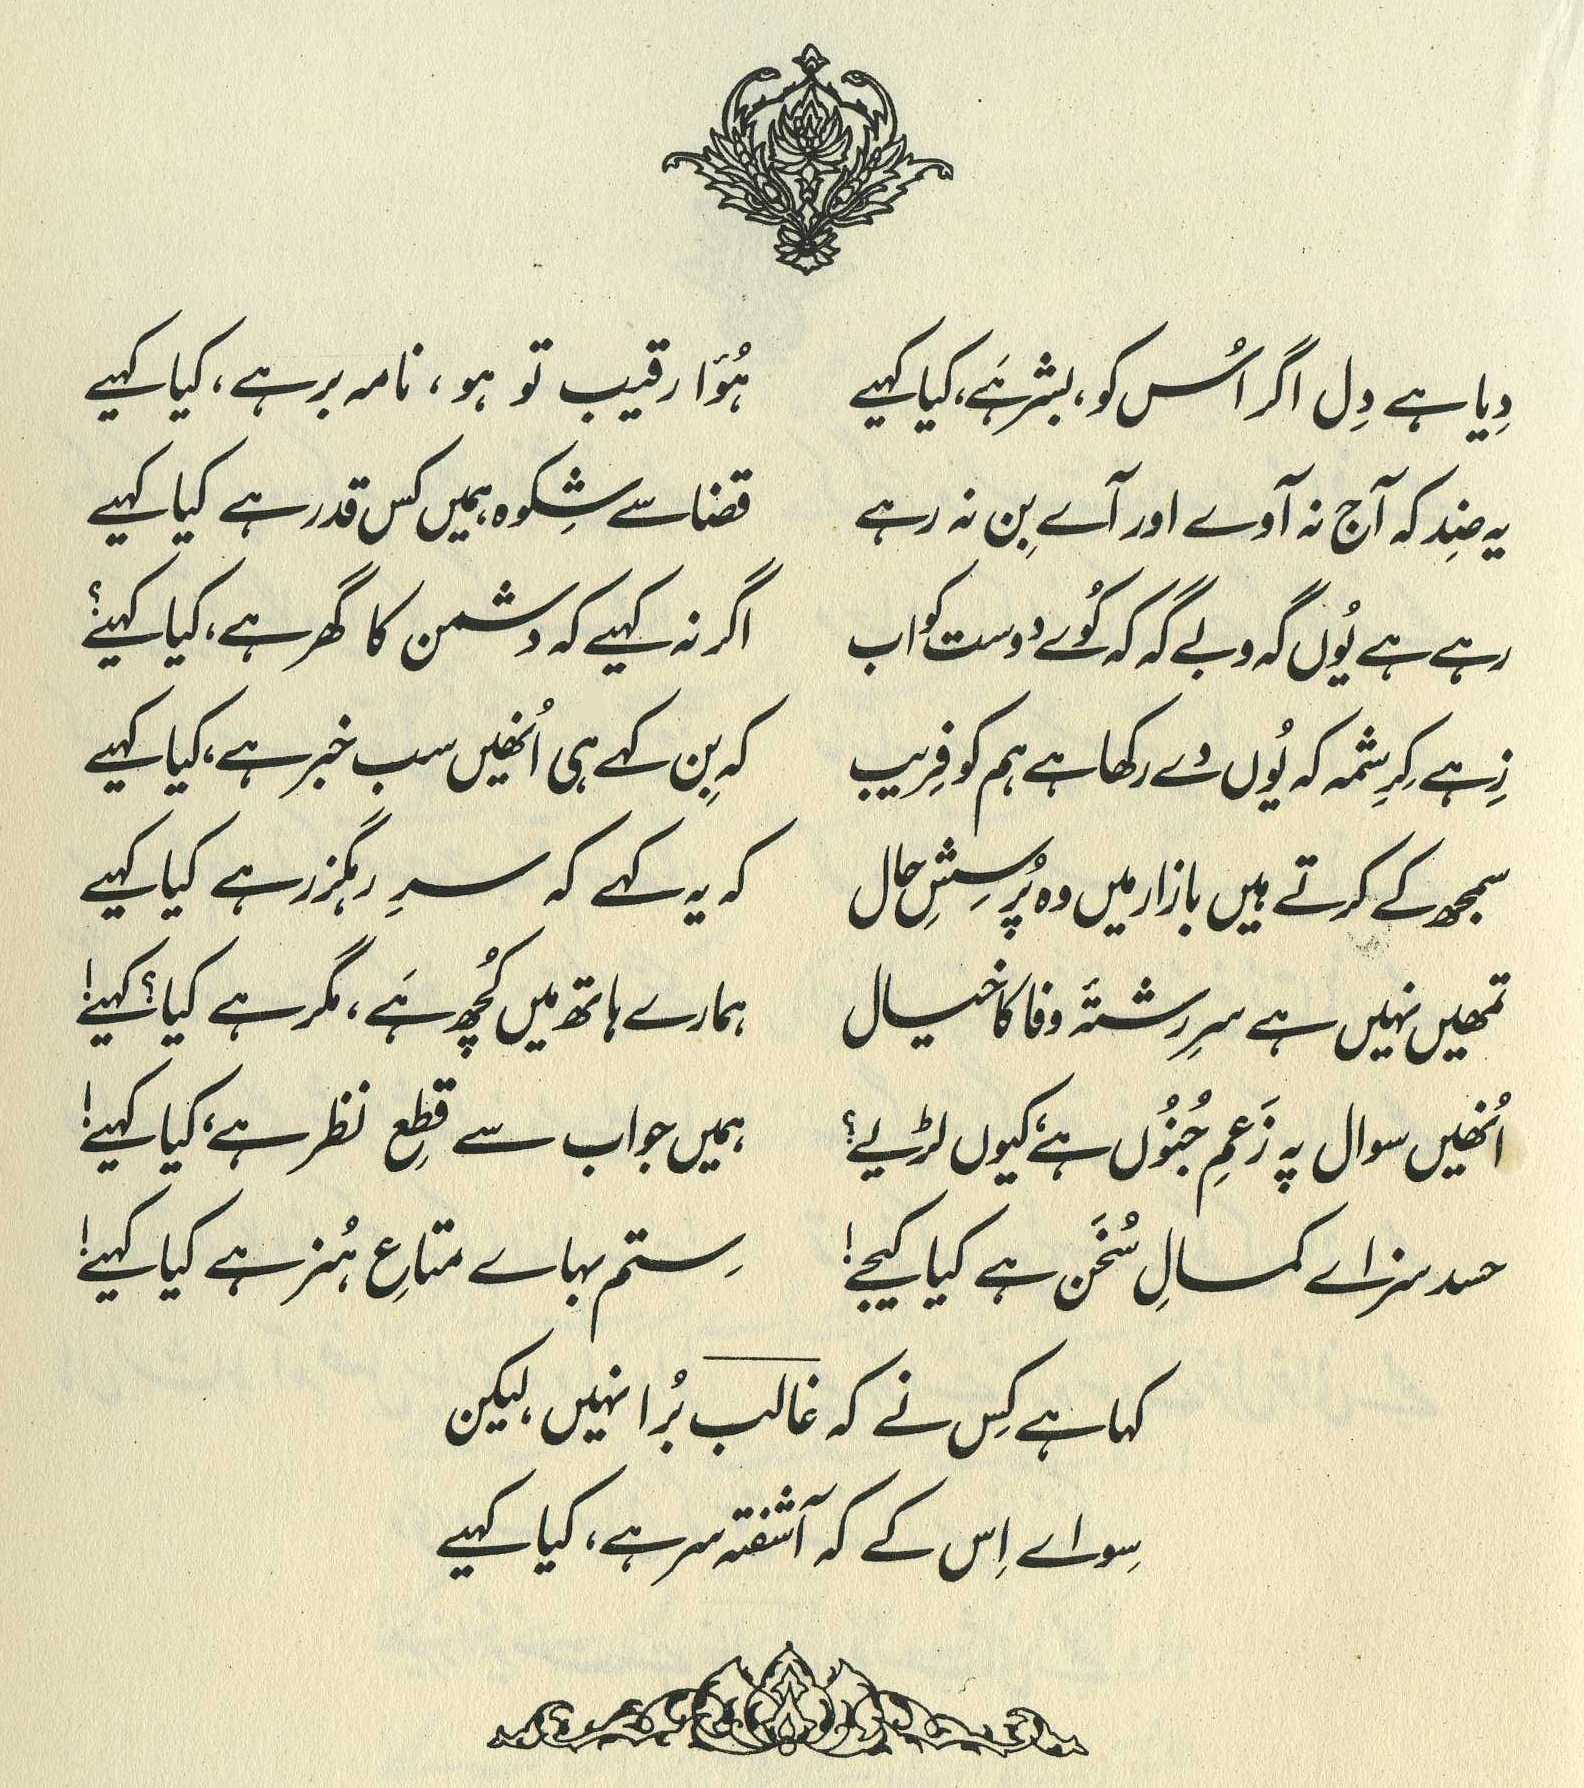 دِیا ہے دِل اگر اُس کو، بشر ہَے، کیا کہیے ہُوَا رقیب تو ہو، نامہ بر ہے، کیا کہیے
یہ ضِد کہ آج نہ آوے اور آے بِن نہ رہے قضا سے شِکوہ ہمیں کس قدر ہے کیا کہیے
رہے ہے یُوں گہ و بے گہ کہ کُوے دوست کو اب اگر نہ کہیے کہ دشمن کا گھر ہے، کیا کہیے؟
زِہے کِرِشمہ کہ یُوں دے رکھا ہے ہم کو فِریب کہ بِن کہے ہی اُنھیں سب خبر ہے، کیا کہیے
سمجھ کے کرتے ہیں بازار میں وہ پُرسِشِ حال کہ یہ کہے کہ سرِ رہگزر ہے کیا کہیے
تمھیں نہیں ہے سرِ رشتۂ وفا کا خیال ہمارے ہاتھ میں کُچھ ہَے، مگر ہے کیا؟ کہیے!
اُنھیں سوال پہ زَعمِ جُنُوں ہے، کیوں لڑیے؟ ہمیں جواب سے قطِع نظر ہے، کیا کہیے!
حسد سزاے کمالِ سُخَن ہے کیا کیجے! سِتم بہاے متاعِ ہُنر ہے کیا کہیے!
کہا ہے کِس نے کہ غالب بُرا نہیں، لیکن
سِواے اِس کے کہ آشفتہ سر ہے، کیا کہیے